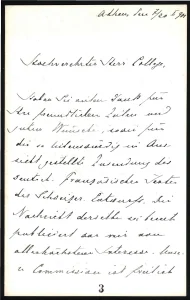 Athen, den 7/20 I 
Hochverehrter Herr College.
Haben Sie vielen Dank für
Ihre freundlichen Zeilen und
guten Wünsche, sowie für
die so liebenswürdig in Aus-
sicht gestellte Zusendung des
deutsch. Französischen Textes
des Schweizer. Entwurfs. Die
Nachricht derselbe sei bereits
publiciert war mir von
allerhöchstem Interesse. Unse-
re Commission ist freilich
3